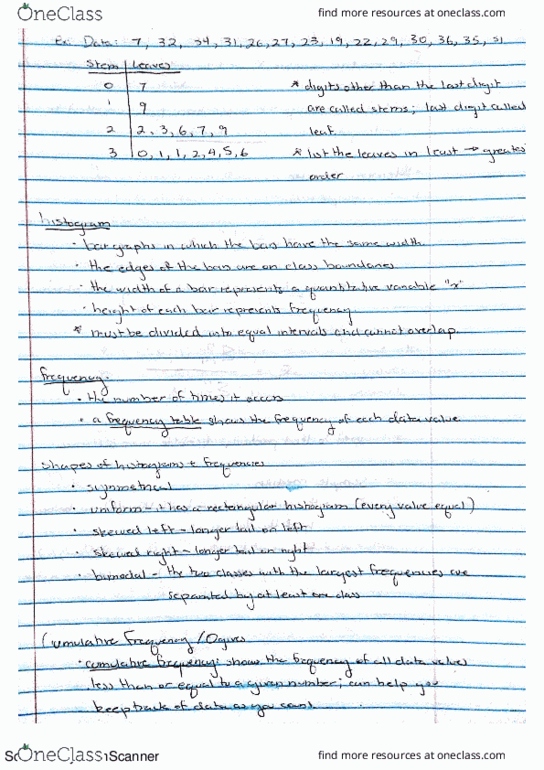 OneClass find more resources at oneclass.com
Ex: Data: 7, 32, 34, 31, 26, 27, 23, 19, 22, 29, 30, 36, 35, 31
Stem Leaves
0 7
1 9
2 2, 3, 6, 7, 9
3 0, 1, 1, 2, 4, 5, 6
* digits other than the last digit
are called stems; last digit called
leaf
* list the leaves in least → greatest
order
histogram
· bar graphs in which the bars have the same width
· the edges of the bars are on class boundaries
· the width of a bar represents a quantitative variable "x"
· height of each bar represents frequency
* must be divided into equal intervals and cannot overlap
frequency
· the number of times it occurs
· a frequency table shows the frequency of each data value
shapes of histograms + frequencies
· symmetrical
· uniform - it has a rectangular histogram (every value equal)
· skewed left - longer tail on left
· skewed right - longer tail on right
· bimodal - the two classes with the largest frequencies are
separated by at least one class
Cumulative Frequency / Ogives
· cumulative frequency: shows the frequency of all data values
less than or equal to a given number; can help you
keep track of data as you
OneClass Scanner find more resources at oneclass.com